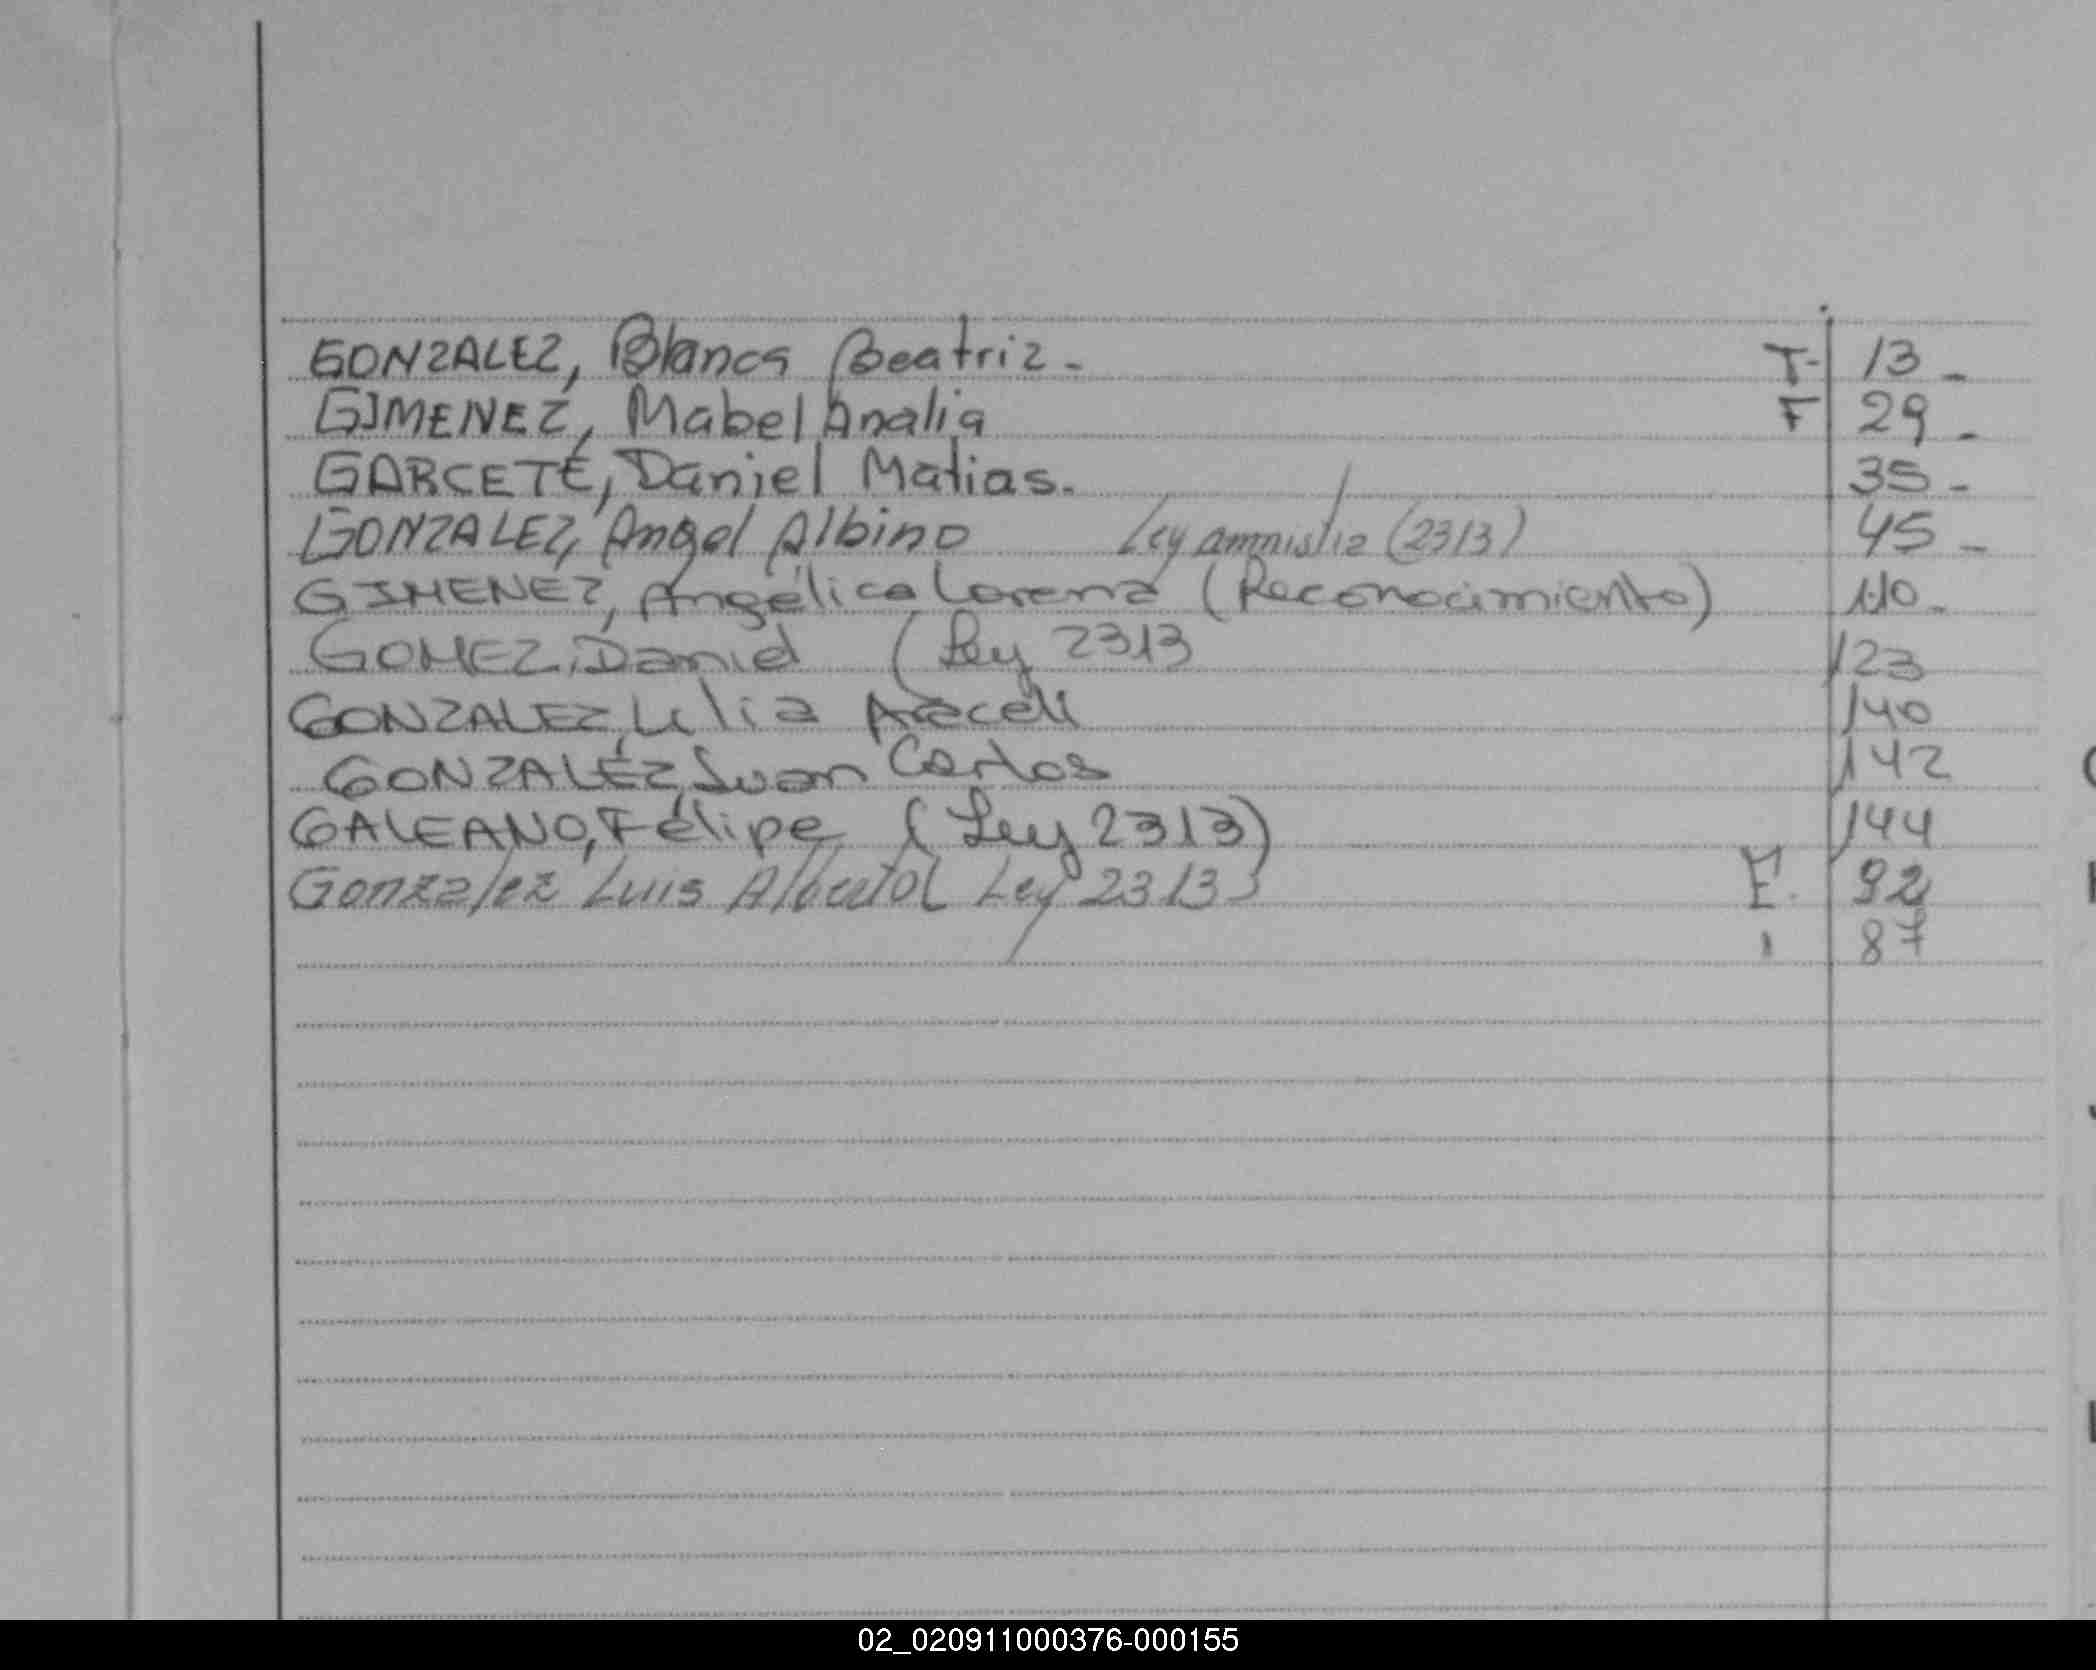 GONZALEZ, Blanca Beatriz - T- 13 -
GIMENEZ, Mabel Analia F 29 -
GARCETE, Daniel Matias. 35 -
GONZALEZ, Angel Albino Ley amnistia (2313) 45 -
GIMENEZ, Angélica Lorena (Reconocimiento) 110 -
GOMEZ, Daniel (Ley 2313 123
GONZALEZ, Lilia Araceli 140
GONZALEZ, Juan Carlos 142
GALEANO, Felipe (Ley 2313) 144
Gonzalez Luis Alberto( Ley 2313) F. 92
87
02_020911000376-000155